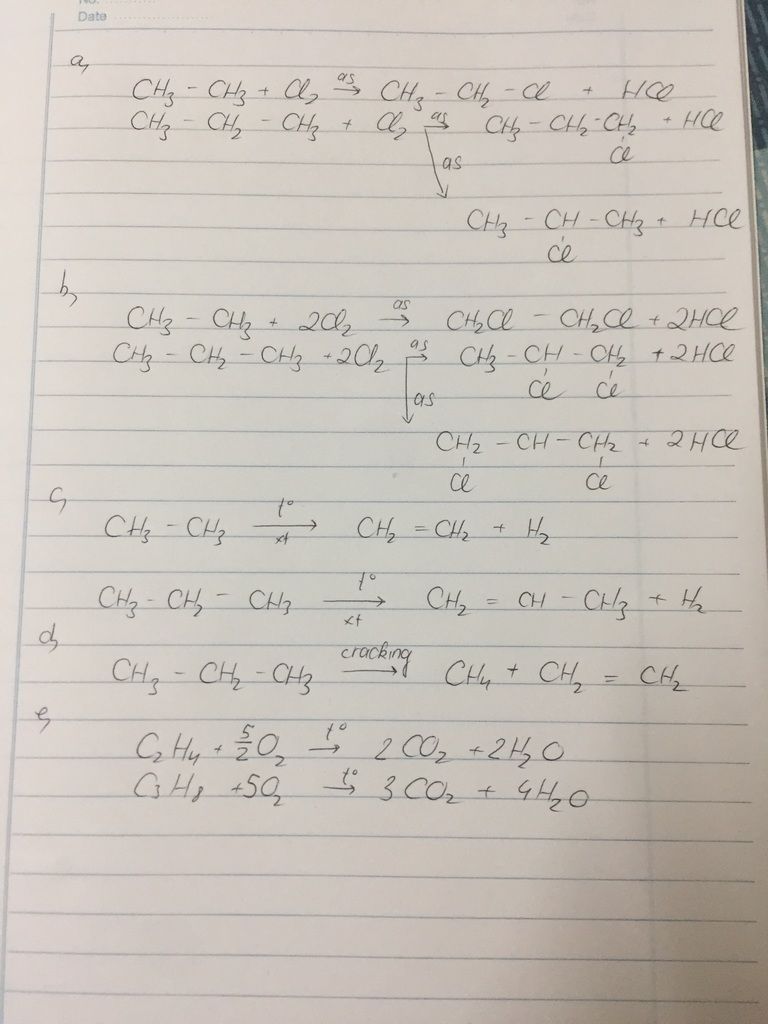 No.
Date
a,
CH₃ - CH₃ + Cl₂ as→ CH₃ - CH₂ - Cl + HCl
CH₃ - CH₂ - CH₃ + Cl₂ as→ CH₃ - CH₂ - CH₂ + HCl
Cl
as
CH₃ - CH - CH₃ + HCl
Cl
b,
CH₃ - CH₃ + 2Cl₂ as→ CH₂Cl - CH₂Cl + 2HCl
CH₃ - CH₂ - CH₃ + 2Cl₂ as→ CH₃ - CH - CH₂ + 2HCl
Cl Cl
as
CH₂ - CH - CH₂ + 2HCl
Cl Cl
c,
CH₃ - CH₃ t°→xt CH₂ = CH₂ + H₂
CH₃ - CH₂ - CH₃ t°→xt CH₂ = CH - CH₃ + H₂
d,
CH₃ - CH₂ - CH₃ cracking→ CH₄ + CH₂ = CH₂
e,
C₂H₄ + 5/2 O₂ t°→ 2CO₂ + 2H₂O
C₃H₈ + 5O₂ t°→ 3CO₂ + 4H₂O